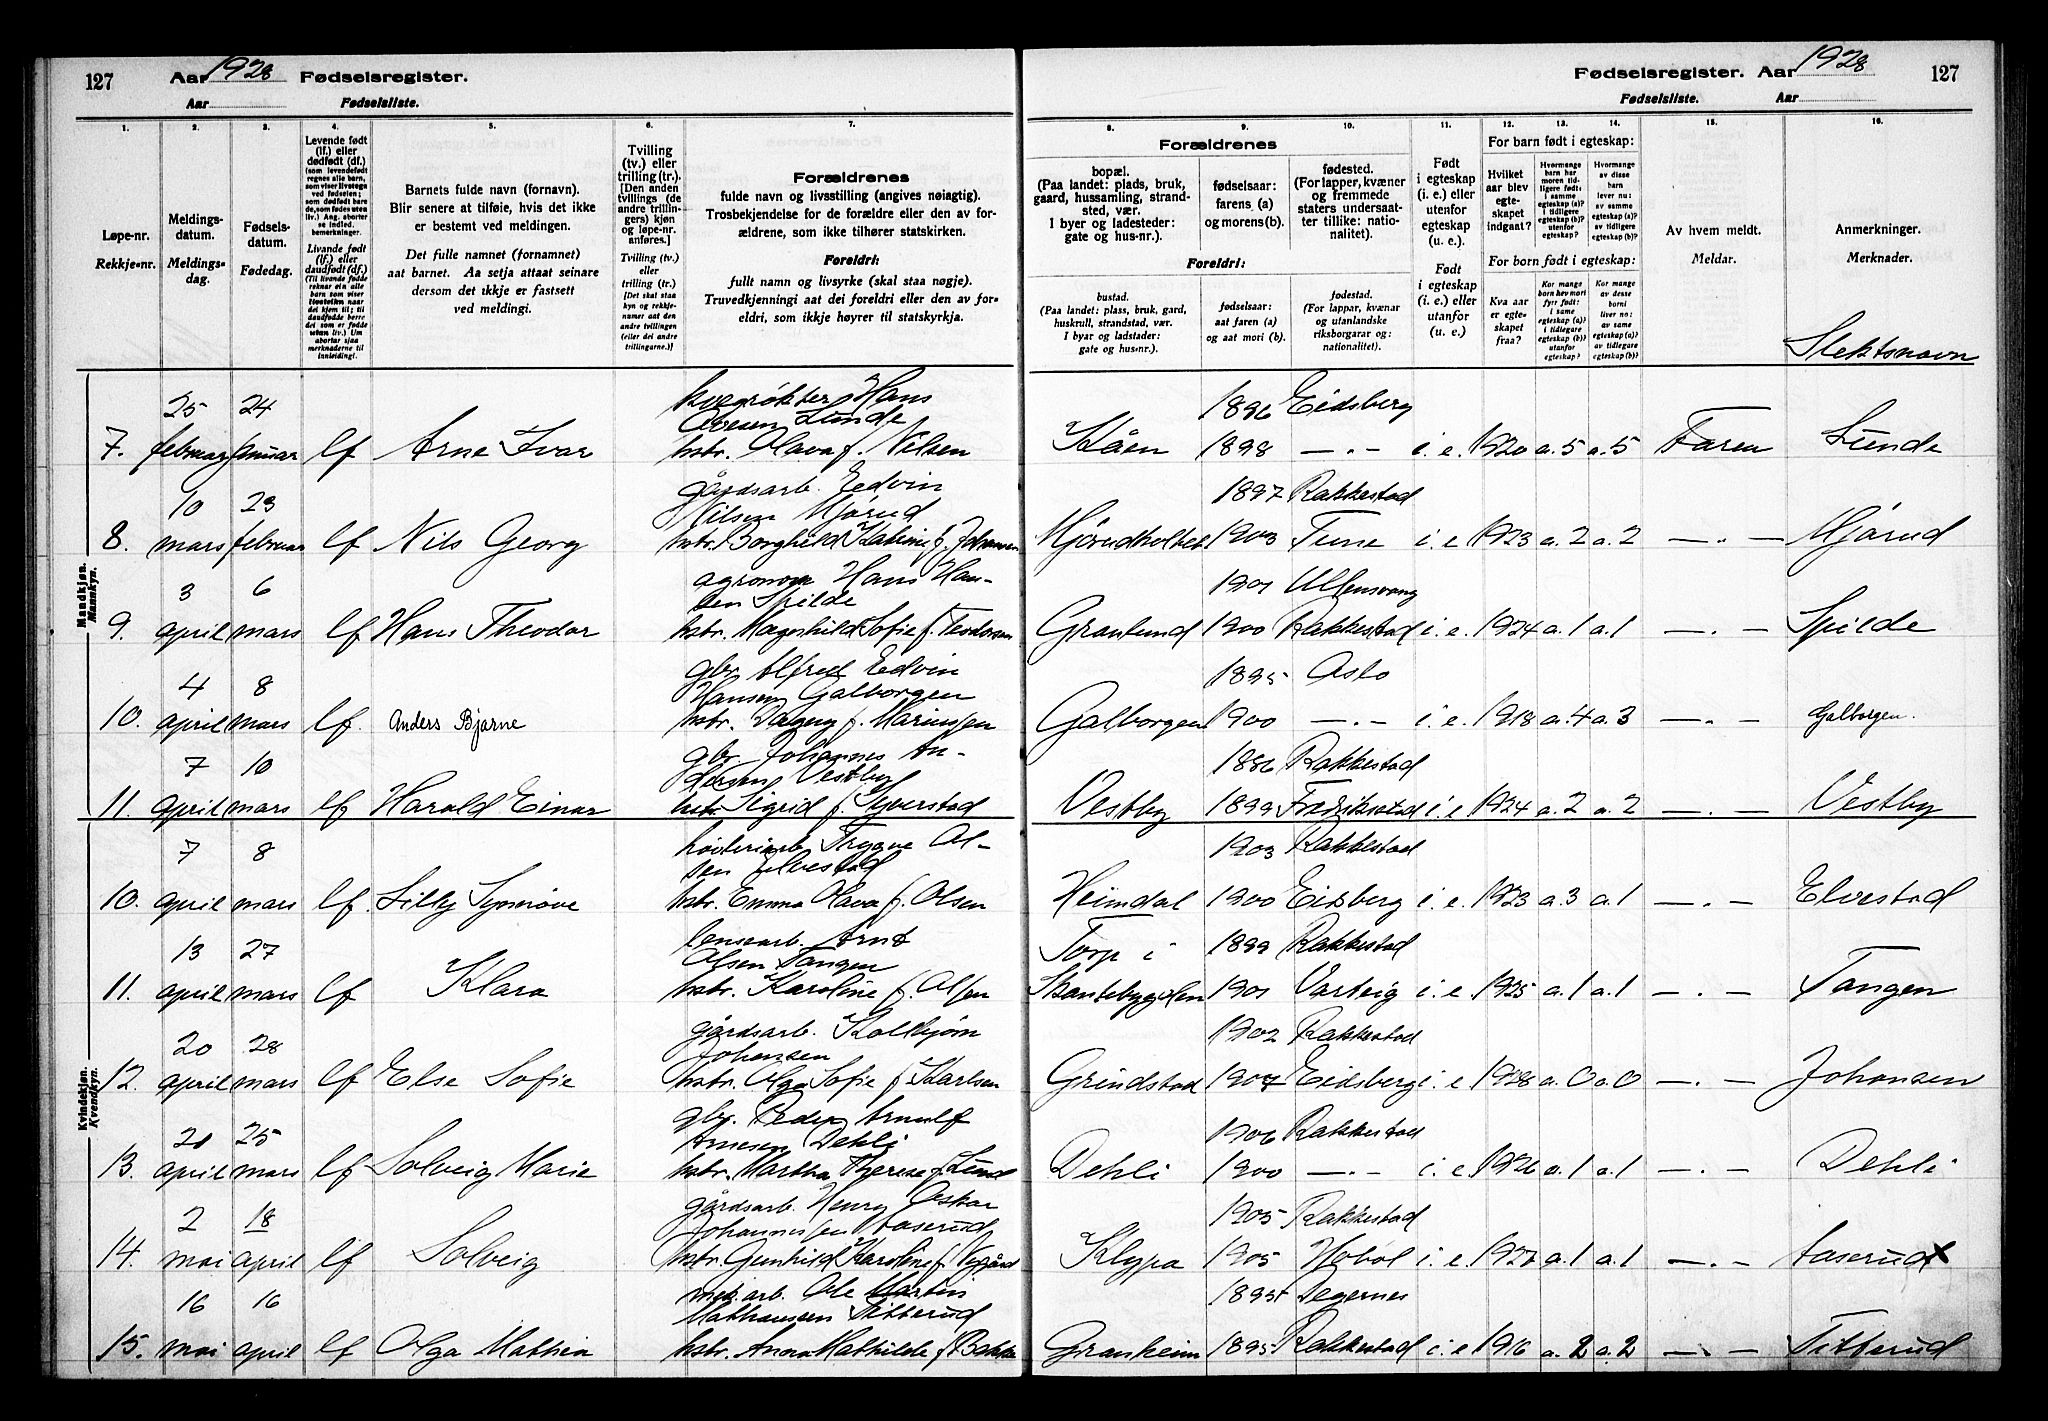 127 Aar 1928 Fødselsregister.
Aar Fødselsliste.
Fødselsregister. Aar 1928 127
Fødselsliste. Aar
1. 2. 3. 4. 5. 6. 7.
Løpe-nr.
Rekkje-nr.
Meldings-
datum.
Meldings-
dag.
Fødsels-
datum.
Fødedag.
Levende født
(lf.) eller
dødfødt (df.)
Livande født
(lf.) eller
daudfødt (df.)
Barnets fulde navn (fornavn).
Blir senere at tilføie, hvis det ikke
er bestemt ved meldingen.
Det fulle namnet (fornamnet)
aat barnet. Aa setja attaat seinare
dersom det ikkje er fastsett
ved meldingi.
Tvilling
(tv.) eller
trilling (tr.)
[Den anden
tvillings (de
andre trillin-
gers) kjøn
og løpe-nr.
anføres.]
Tvilling (tv.)
eller
trilling (tr.)
Forældrenes
fulde navn og livsstilling (angives nøiagtig).
Trosbekjendelse for de forældre eller den av for-
ældrene, som ikke tilhører statskirken.
Foreldri:
fullt namn og livsyrke (skal staa nøgje).
Truvedkjenningi aat dei foreldri eller den av for-
eldri, som ikkje høyrer til statskyrkja.
8. 9. 10. 11. 12. 13. 14. 15. 16.
Forældrenes
bopæl.
(Paa landet: plads, bruk,
gaard, hussamling, strand-
sted, vær.
I byer og ladesteder:
gate og hus-nr.).
fødselsaar:
farens (a)
og morens (b).
fødested.
(For lapper, kvæner
og fremmede
staters undersaat-
ter tillike: natio-
nalitet).
Foreldri:
bustad.
(Paa landet: plass, bruk, gard,
huskrull, strandstad, vær.
I byar og ladstader:
gate og hus-nr.).
fødselsaar:
aat faren (a)
og aat mori (b).
fødestad.
(For lappar, kvænar
og utanlandske
riksborgarar og:
nationalitet).
Født
i egteskap
(i. e.) eller
utenfor
egteskap
(u. e.).
Født
i egteskap
(i. e.) eller
utanfor
(u. e.)
For barn født i egteskap:
Hvilket
aar blev
egte-
skapet
indgaat?
For born født i egteskap:
Kva aar
er egte-
skapet
fraa?
Av hvem meldt.
Meldar.
Anmerkninger.
Merknader.
Slektsnavn
Mandkjøn.
Mannkyn.
25 24 Hans 1896 Eidsberg
Lunde
7. februar januar lf Arne Ivar hstr. Olava f. Nilsen 1898 —.— i. e. 1920 a. 5 a. 5 Faren Lunde
10 23 gårdsarb. Edvin 1897 Rakkestad
Nilsen Mjørud
8. mars februar lf Nils Georg hstr. Borghild f. Johansen 1903 Tune i. e 1923 a. 2 a. 2 —.— Mjørud
3 6 agronom Hans Han- 1901 Ullensvang
sen Spilde
9. april mars lf Hans Theodor hstr. Sofie f. Teodorsen Granlund 1900 Rakkestad i. e. 1924 a. 1 a. 1 —.— Spilde
4 8 gbr. Alfred Edvin 1895 Oslo
Hansen Galborgen
10. april mars lf. Anders Bjarne hstr. Dagny f. Mariussen Galborgen 1900 —.— i. e. 1918 a. 4 a. 3 —.— Galborgen.
7 10 gbr. Johannes An- 1886 Rakkestad
dersen Vestby
11. april mars lf Harald Einar hstr. Sigrid f. Syverstad Vestby 1899 Fredrikstad i. e 1924 a. 2 a. 2 —.— Vestby
Kvindekjøn.
Kvendkyn.
7 8 Trygve Ol- 1903 Rakkestad
sen Elvestad
10. april mars lf. Lilly Synnøve hstr. Emma Olava f. Olsen Heimdal 1900 Eidsberg i. e. 1923 a. 3 a. 1 —.— Elvestad
13 27 lensearb. Arnt Torp i 1899 Rakkestad
Olsen Tangen
11. april mars lf Klara hstr. Karoline f. Olsen 1901 Varteig i. e. 1925 a. 1 a. 1 —.— Tangen
20 28 gårdsarb. Kolbjørn 1902 Rakkestad
Johansen
12. april mars lf Else Sofie hstr. Olga Sofie f Karlsen Grindstad 1907 Eidsberg i. e 1928 a. 0 a. 0 —.— Johansen
20 25 gbr. Peder Arnulf 1906 Rakkestad
Arnesen Dehli
13. april mars lf Solveig Marie hstr. Martha Therese f. Lund Dehli 1900 —.— i. e. 1926 a. 1 a. 1 —.— Dehli
2 18 gårdsarb. Henry Oskar 1905 Rakkestad
Johannissen Aaserud
14. mai april lf Solveig hstr. Gunhild Karoline f. Nygård Klypa 1905 Hobøl i. e. 1927 a. 1 a. 1 —.— Aaserud
16 16 Ole Martin 1895 Degernes
Mathausen Titterud
15. mai april lf Olga Mathea hstr. Anna Mathilde f Bakke Granheim 1895 Rakkestad i. e 1916 a. 2 a. 2 —.— Titterud